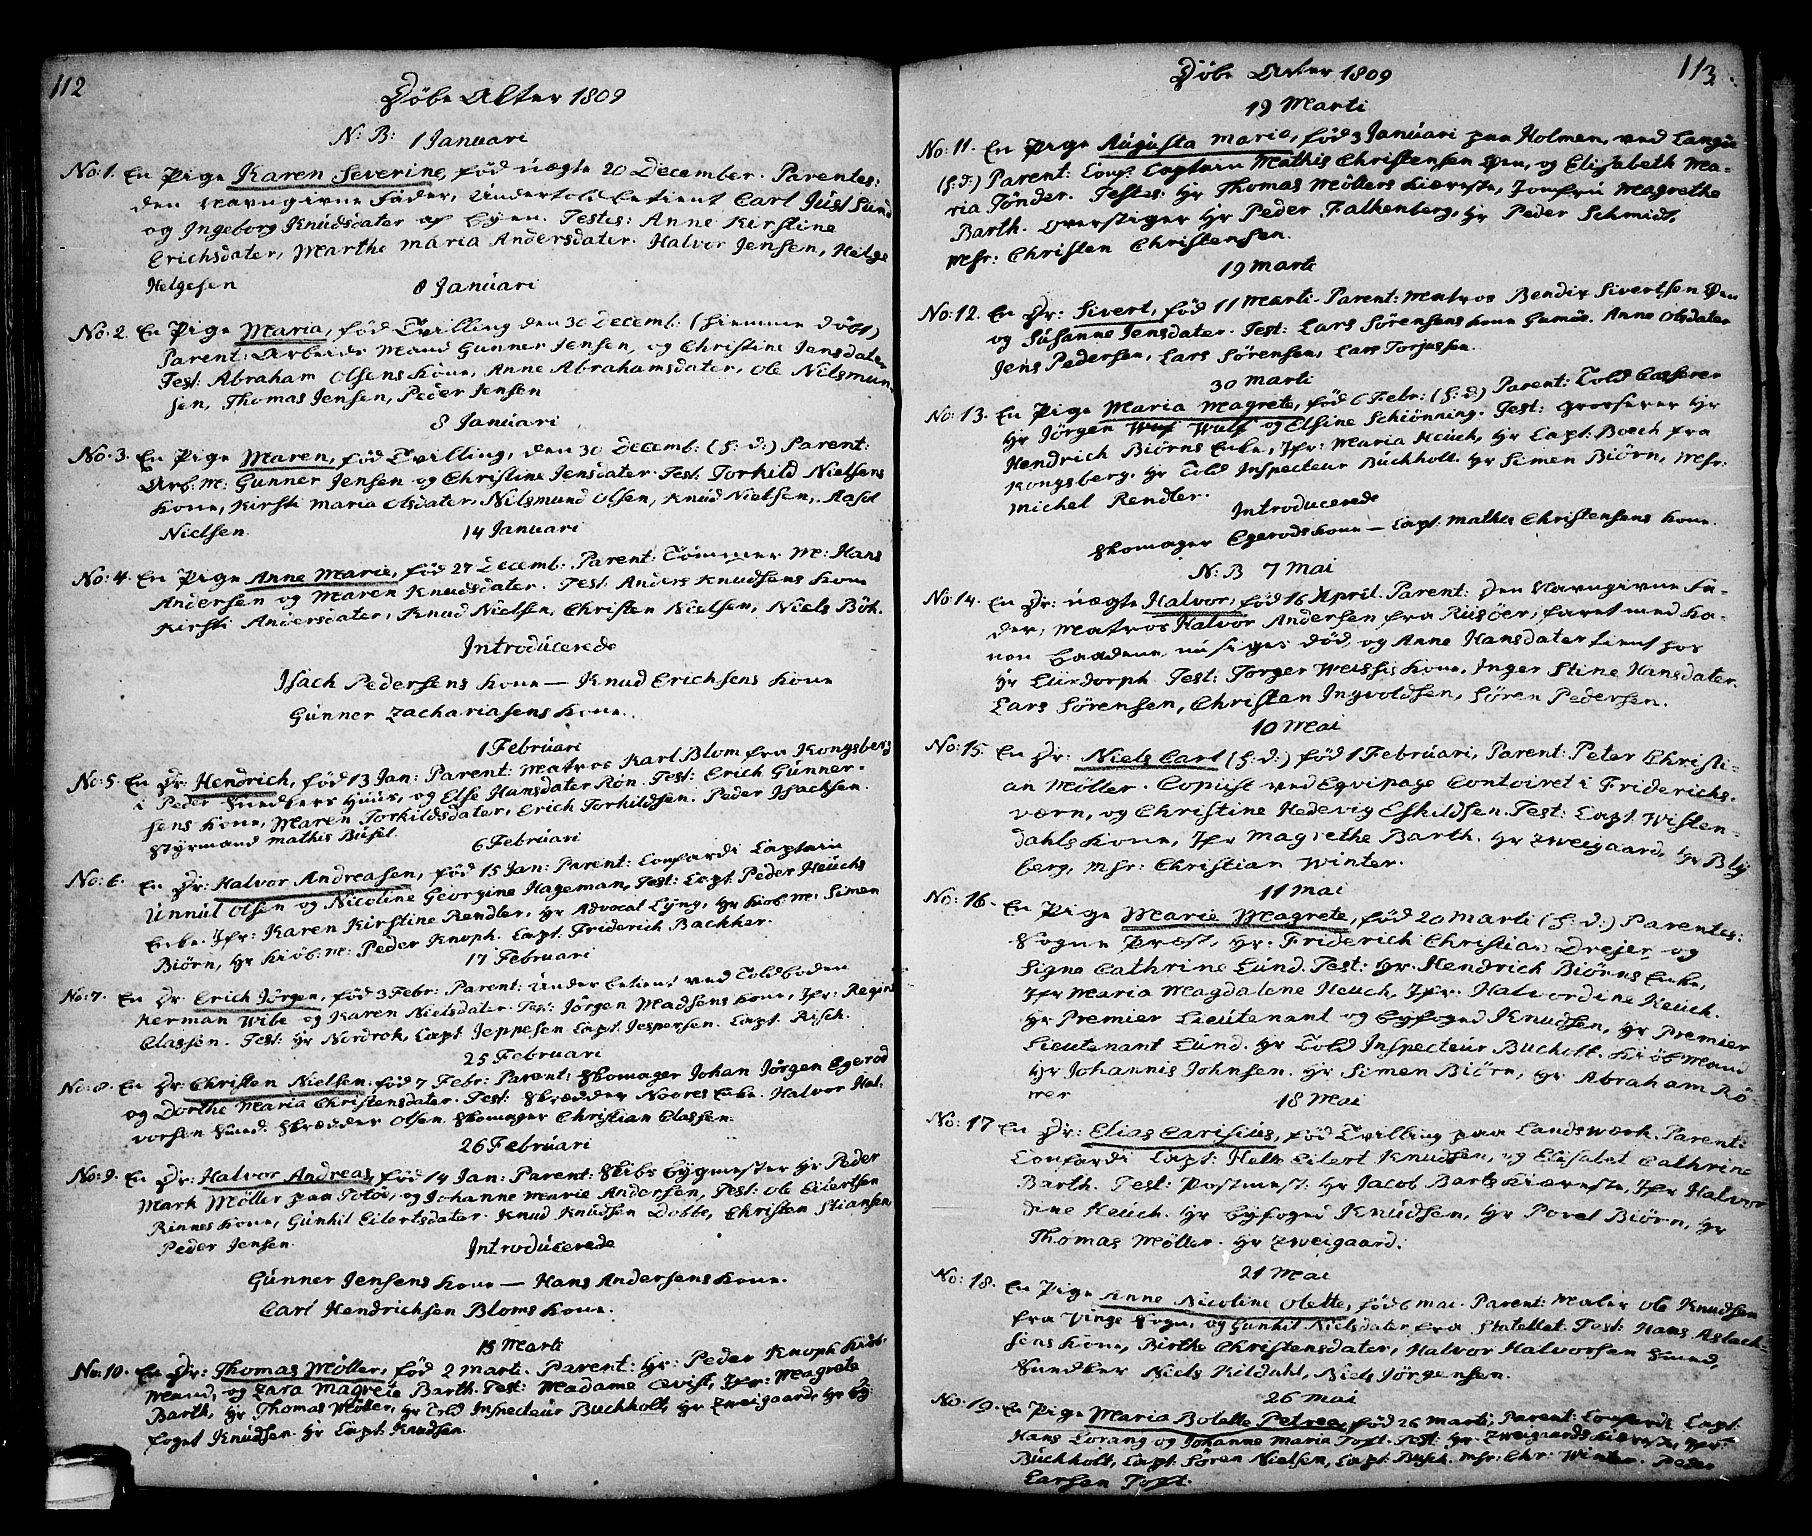 112
Döbe Alter 1809
N: B: 1 Januari
No: 1. En Pige Karen Severine, fød uægte 20 December. Parentes:
den navngivne Fader, Undertoldbetient Carl Just Lund
og Ingeborg Knudsdater af Byen. Testes: Anne Kirstine
Erichsdater, Marthe Maria Andersdater. Halvor Jensen, Helge
Helgesen
8 Januari
No: 2. En Pige Maria, fød Tvilling den 30 Decemb: (hiemme døbt)
Parent: Arbeids Mand Gunner Jensen, og Christine Jensdater
Test: Abraham Olsens Kone, Anne Abrahamsdater, Ole Nilsmun
sen, Thomas Jensen, Peder Jensen
8 Januari
No: 3. En Pige Maren, fød Tvilling, den 30 Decemb: (h: d:) Parent:
Arb. M: Gunner Jensen og Christine Jensdater. Test: Torkild Nielsens
Kone, Kirsti Maria Olsdater. Nilsmund Olsen, Knud Nielsen, Aasol
Nielsen.
14 Januari
No: 4. En Pige Anne Marie, fød 27 Decemb. Parent: Tømmer M: Hans
Andersen og Maren Knudsdater. Test: Anders Knudsens Kone
Kirsti Andersdater, Knud Nielsen, Christen Nielsen, Niels Böh.
Introducerede
Isach Pedersens Kone — Knud Erichsens Kone
Gunner Zachariasens Kone.
1 Februari
No: 5 En Dr: Hendrich, fød 13 Jan: Parent: Matros Karl Blom fra Kongsberg
i Peder Sundbers Huus, og Else Hansdater Røn. Test: Erich Gunner-
sens Kone, Maren Torkildsdater, Erich Torkildsen. Peder Isachsen.
Styrmand Mathis Busel.
6 Februari
No: 6. En Dr: Halvor Andreasen, fød 15 Jan: Parent: Coufardi Captain
Unnul Olsen og Nicoline Georgine Hageman, Test: Capt. Peder Heuchs
Enke. Jfr: Karen Kirstine Rendler, Hr Advocat Lyng, Hr Kiöb M: Simen
Biörn, Hr Kiöb: M: Peder Knoph. Capt: Friderich Bachker.
17 Februari
No: 7. En Dr. Erich Jörgen, fød 3 Febr: Parent: Under betient ved Toldboden
Herman Wibe og Karen Nielsdater. Test: Jörgen Madsens Kone, Jfr: Regine
Classen. Test: Hr Nordrok, Capt Jeppesen Capt. Jespersen. Capt. Risch.
25 Februari
No: 8. En Dr: Christen Nielsen, fød 7 Febr: Parent: Skomager Johan Jörgen Egerod
og Dorthe Maria Christensdater. Test: Skrædder Noores Enke. Halvor Hal-
vorsen Sund. Skrædder Olsen. Skomager Christian Classen.
26 Februari
No: 9. En Dr: Halvor Andreas, fød 14 Jan: Parent: Skibs Bygmester Hr Peder
Mark Möller paa Totöe, og Johanne Marie Andersen, Test: Ole Eilertsen
Rinnes Kone, Gunhil Eilertsdater. Knud Knudsen Dobbe, Christen Stiansen,
Peder Jensen.
Introducerede
Gunner Jensens Kone — Hans Andersens Kone.
Carl Hendrichsen Bloms Kone.
15 Marti
No: 10. En Dr: Thomas Möller, fød 2 Marti. Parent: Hr: Peder Knoph Kiöb-
mand, og Zara Magrete Barth. Test: Madame Qvist, Jfr: Magrete
Barth, Hr Thomas Möller, Hr Told Inspecteur Buchholt, Hr Zweigaard, Hr By
foget Knudsen. Hr Capt. Knudsen.
113
Döbe Alter 1809
19 Marti
No: 11. En Pige Augusta Marie, fød 3 Januari paa Holmen, ved Langöe
(h: d:) Parent: Couf. Captain Mathis Christensen Øen, og Elisabeth Ma-
ria Tönder. Testes: Hr Thomas Möllers Kiæreste, Jomfru Magrethe
Barth. Overstiger Hr Peder Falkenberg, Hr Peder Schmidt,
Msr: Christen Christensen.
19 Marti
No: 12. En Dr: Sivert, fød 11 Marti. Parent: Matros Bendix Sivertsen Øen
og Susanne Jensdater. Test: Lars Sörensens Kone Gumöe. Anne Olsdater
Jens Pedersen, Lars Sörensen, Lars Torjussen.
30 Marti
No: 13. En Pige Maria Magrete, fød 6 Febr: (h: d:) Parent: Told Casserer
Hr Jörgen Wulf og Elsine Schiönning. Test: Grosserer Hr
Hendrich Biörns Enke, Jfr: Maria Heuch, Hr Capt: Boech fra
Kongsberg. Hr Told Inspecteur Buchholt. Hr Simen Biörn, Msr:
Michel Rendler.
Introducerede
Skomager Egerods Kone — Capt. Mathis Christensens Kone.
N: B 7 Mai
No: 14. En Dr: uægte Halvor, fød 16 April. Parent: Den navngivne Fa-
der, Matros Halvor Andersen fra Risöer, faret med Ka-
non baadene, nu siges død, og Anne Hansdater tient for
Hr Elirdorph. Test: Torger Weissis Kone, Inger Stine Hansdater.
Lars Sörensen, Christen Ingvoldsen, Sören Pedersen.
10 Mai
No: 15. En Dr: Niels Carl (h: d:) fød 1 Februari, Parent: Peter Christi-
an Möller. Copiist ved Eqvipage Contoiret i Friderichs-
værn, og Christine Hedevig Eskildsen. Test: Capt. Wisten-
dahls Kone, Jfr Magrethe Barth. Hr Zweigaard, Hr Bly
berg, Msr: Christian Winter.
11 Mai
No: 16. En Pige Marie Magrete, fød 20 Marti (h: d:) Parentes:
Sogne Præst, Hr: Friderich Christian Drejer og
Signe Cathrine Lund. Test: Hr. Hendrich Biörns Enke,
Jfr Maria Magdalene Heuch, Jfr. Halvordine Heuch.
Hr Premier Lieutenant og Byfoged Knudsen, Hr Premier
Lieutenant Lund. Hr Told Inspecteur Buchholt. Kiöbmand
Hr Johannis Johnsen. Hr Simen Biörn, Hr Abraham Rö
mer
18 Mai
No: 17 En Dr: Elias Carisius, fød Tvilling paa Landsværk. Parent:
Coufardi Capt: Helle Eilert Knudsen, og Elesabet Cathrine
Barth. Test: Postmest: Hr Jacob Barts Kiæreste, Jfr Halvor
dine Heuch. Hr Byfoged Knudsen, Hr Povel Biörn, Hr
Thomas Möller. Hr Zweigaard.
21 Mai
No: 18. En Pige Anne Nicoline Olette, fød 6 Mai. Parent: Maler Ole Knudsen
fra Vinge Sogn, og Gunhil Nielsdater fra Statellet. Test: Hans Asbach-
sens Kone, Birthe Christensdater, Halvor Halvorsen Sund,
Snedker Niels Kildahl, Niels Jörgensen.
26 Mai
No: 19. En Pige Maria Bolette Petrea, fød 26 Marti, Parent: Coufardi Capt.
Hans Lorang og Johanne Maria Toft. Test: Hr. Zweigaards Kiæreste, Jfr:
Buchholt, Capt. Sören Nielsen, Capt: Busch. Msr: Chr: Winter. Peder
Larsen Toft.